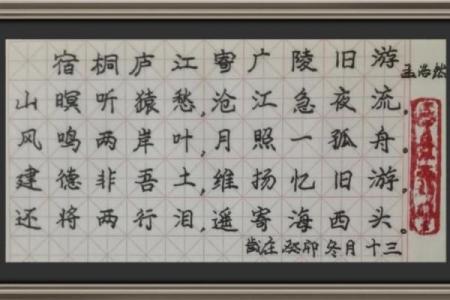 宿桐庐江寄广陵旧游
孟浩然
山暝听猿愁,沧江急夜流,
风鸣两岸叶,月照一孤舟。
建德非吾土,维扬忆旧游,
还将两行泪,遥寄海西头。
岁在癸卯冬月十三